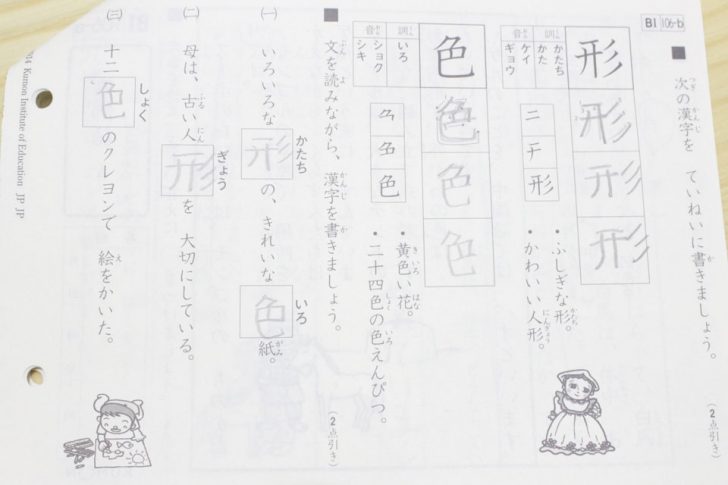 B1 106-b
■ 次の漢字を ていねいに書きましょう。
(2点引き)
形 形 形 形
訓 かたち かた
音 ケイ ギョウ
二 チ 形
・ふしぎな形。
・かわいい人形。
色 色 色 色
訓 いろ
音 ショク シキ
色
・黄色い花。
・二十四色の色えんぴつ。
■ 文を読みながら、漢字を書きましょう。
(2点引き)
(一) いろいろな形の、きれいな色紙。
かたち いろ
(二) 母は、古い人形を 大切にしている。
ぎょう
(三) 十二色のクレヨンで 絵をかいた。
しょく
Kumon Institute of Education JP JP